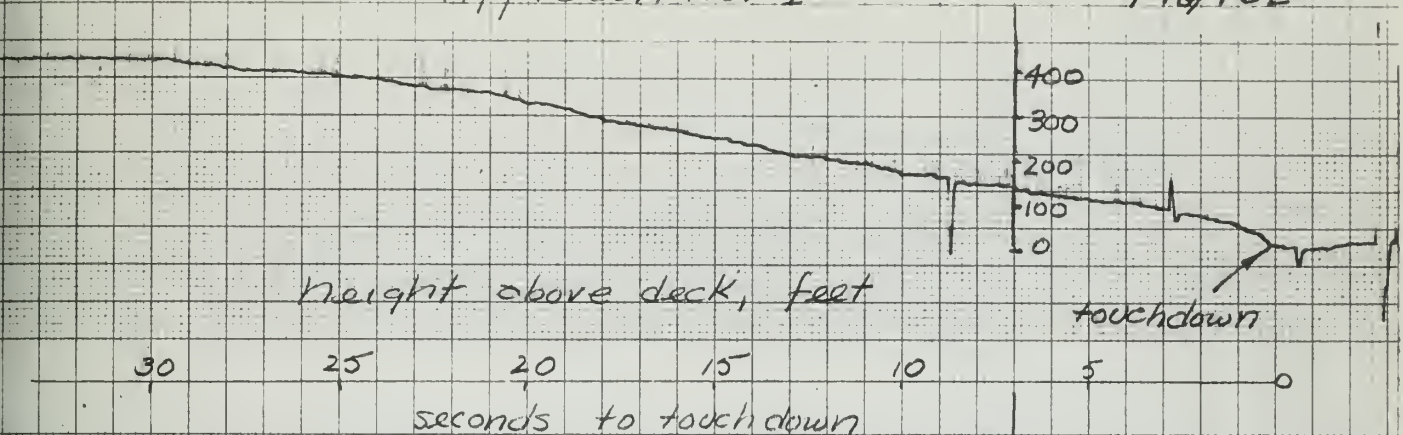 400
300
200
100
0
height above deck, feet
touchdown
30 25 20 15 10 5 0
seconds to touchdown